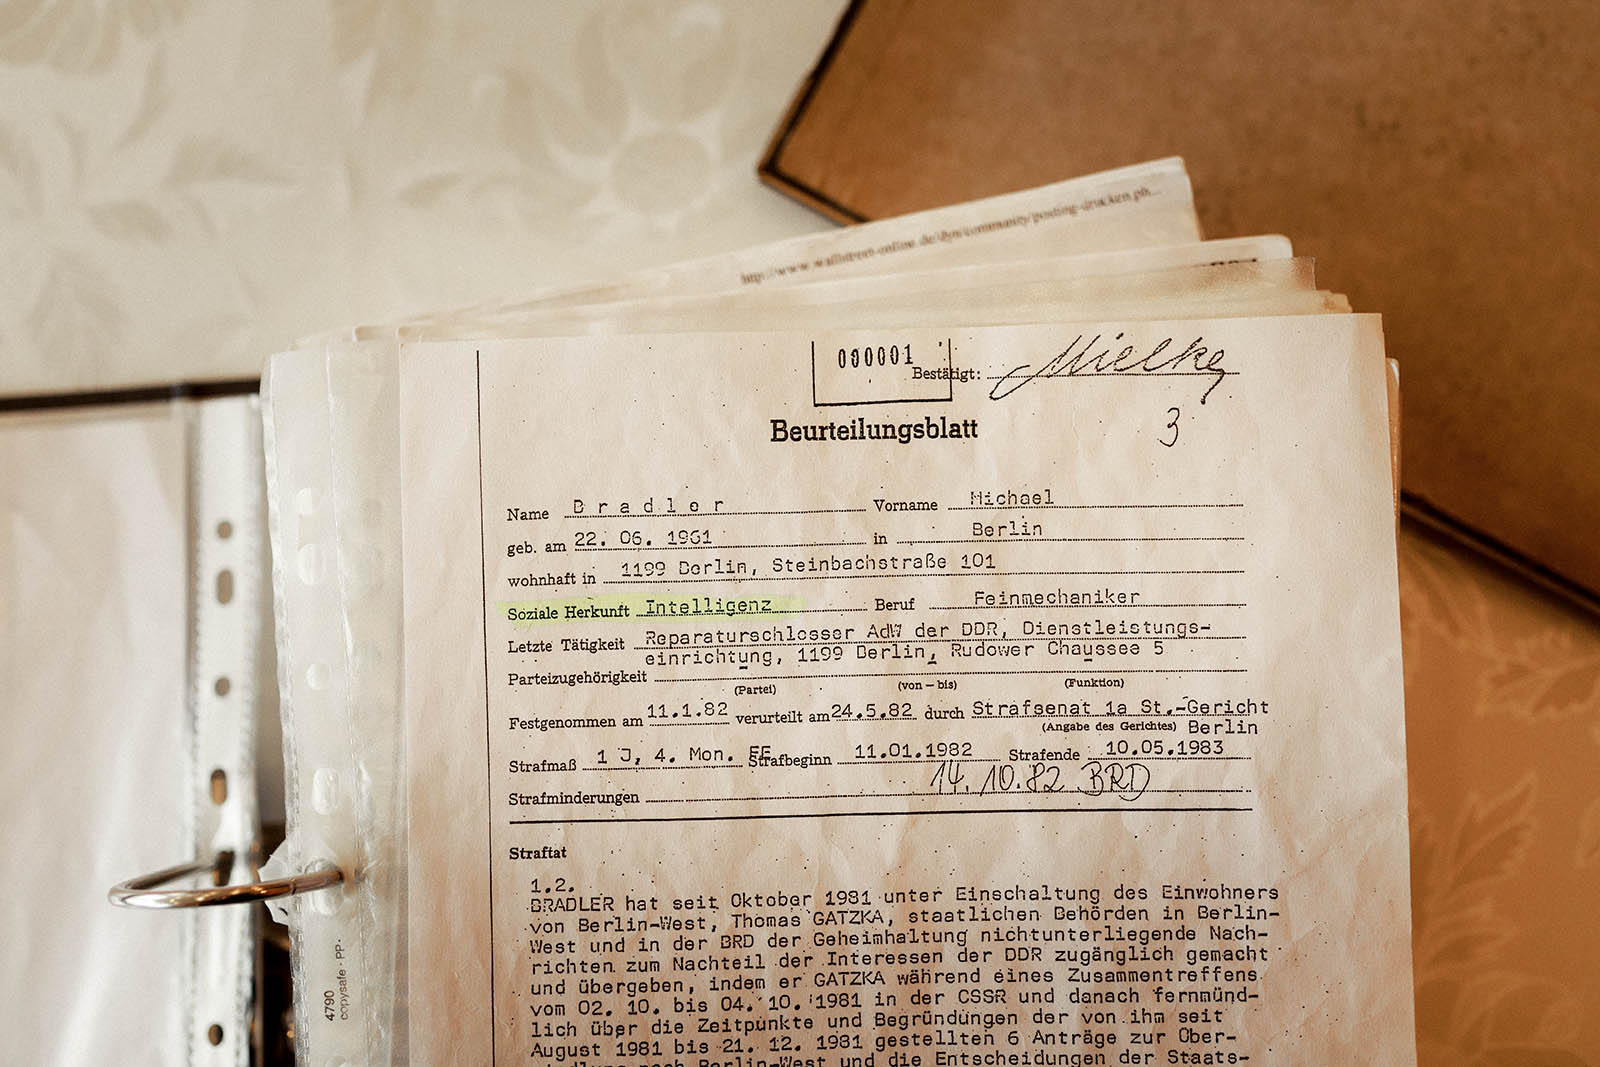 http://www.wallstreet-online.de/dyn/community/posting-drucken.ph...
000001
Bestätigt: Mielke
3
Beurteilungsblatt
Name Bradler Vorname Michael
geb. am 22. 06. 1961 in Berlin
wohnhaft in 1199 Berlin, Steinbachstraße 101
Soziale Herkunft Intelligenz Beruf Feinmechaniker
Letzte Tätigkeit Reparaturschlosser AdW der DDR, Dienstleistungs-
einrichtung, 1199 Berlin, Rudower Chaussee 5
Parteizugehörigkeit
(Partei) (von – bis) (Funktion)
Festgenommen am 11.1.82 verurteilt am 24.5.82 durch Strafsenat 1a St.-Gericht
(Angabe des Gerichtes) Berlin
Strafmaß 1 J, 4. Mon. FE Strafbeginn 11.01.1982 Strafende 10.05.1983
Strafminderungen 14.10.82 BRD
Straftat
1.2.
BRADLER hat seit Oktober 1981 unter Einschaltung des Einwohners
von Berlin-West, Thomas GATZKA, staatlichen Behörden in Berlin-
West und in der BRD der Geheimhaltung nichtunterliegende Nach-
richten zum Nachteil der Interessen der DDR zugänglich gemacht
und übergeben, indem er GATZKA während eines Zusammentreffens
vom 02. 10. bis 04. 10. 1981 in der CSSR und danach fernmünd-
lich über die Zeitpunkte und Begründungen der von ihm seit
August 1981 bis 21. 12. 1981 gestellten 6 Anträge zur Über-
siedlung nach Berlin-West und die Entscheidungen der Staats-
4790
copysafe · PP ·